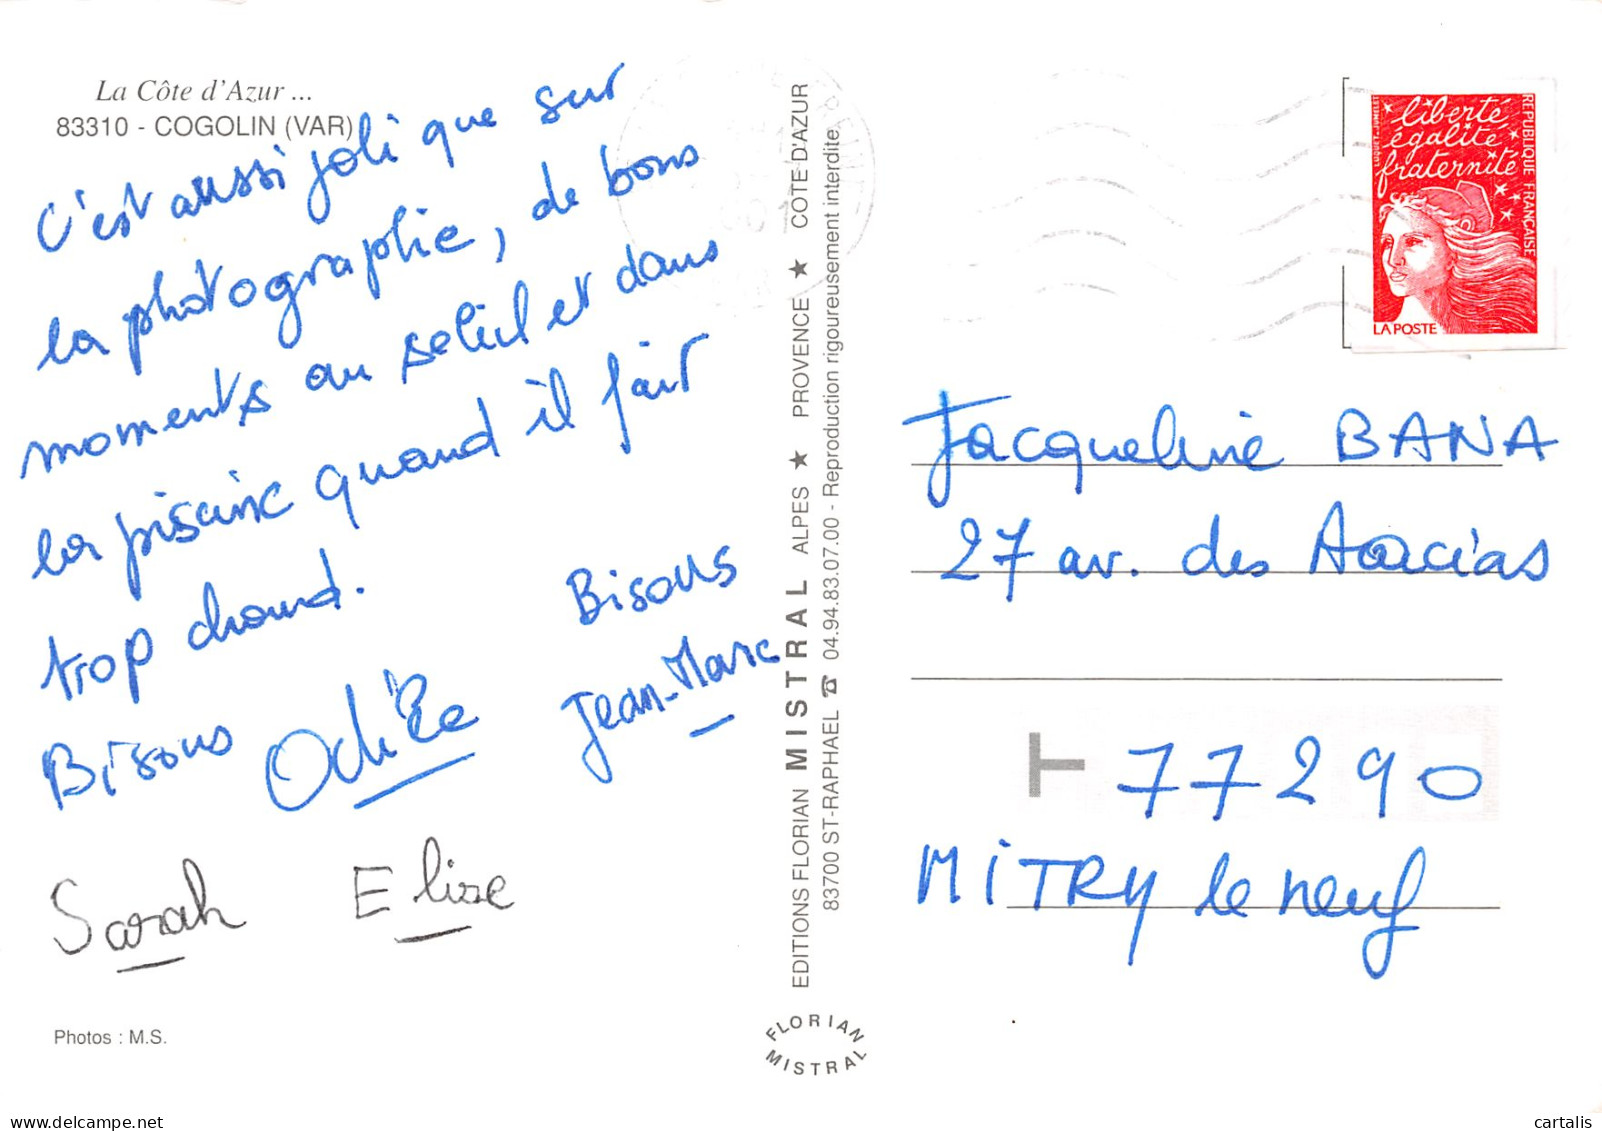 La Côte d'Azur ...
83310 - COGOLIN (VAR)
C'est aussi joli que sur
la photographie, de bons
moments au soleil et dans
la piscine quand il fait
trop chaud.
Bisous Odile
Bisous
Jean-Marc
Sarah Elise
Photos : M.S.
EDITIONS FLORIAN MISTRAL ALPES ★ PROVENCE ★ COTE-D'AZUR
83700 ST-RAPHAEL ☎ 04.94.83.07.00 - Reproduction rigoureusement interdite
FLORIAN
MISTRAL
liberté
égalité
fraternité
REPUBLIQUE FRANÇAISE
LA POSTE
Jacqueline BANA
27 av. des Acacias
T 77290
MiTRY le neuf
www.cartalis.com
cartalis